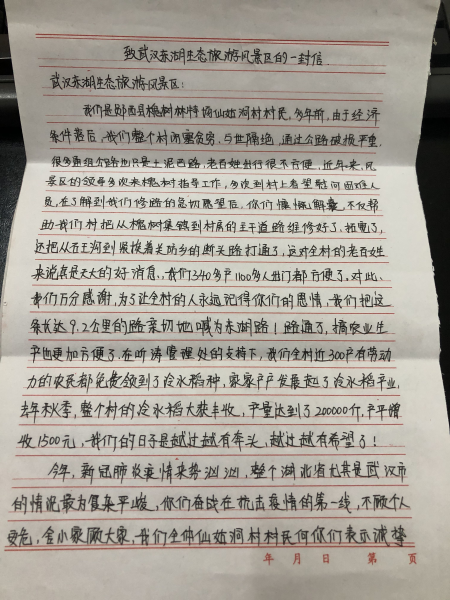 致武汉东湖生态旅游风景区的一封信
武汉东湖生态旅游风景区:
我们是郧西县槐树林特场仙姑洞村村民。多年前,由于经济
条件落后,我们整个村闭塞贫穷,与世隔绝,通过公路破损严重,
很多通组公路也只是土泥巴路,老百姓出行很不方便。近年来,风
景区的领导多次来槐树指导工作,多次到村上看望慰问困难人
员,在了解到我们修路的急切愿望后,你们慷慨解囊,不仅帮
助我们村把从槐树集镇到村房的主干道路组修好了、扭宽了,
还把从石王沟到 关防乡的断头路打通了,这对全村的老百姓
来说真是天大的好消息,我们340多户1160多人出门都方便了。对此,
我们万分感谢,为了让全村的人永远记得你们的恩情,我们把这
条长达9.2公里的路亲切地喊为东湖路!路通了,搞农业生
产也更加方便了。在听涛管理处的支持下,我们全村近300户有劳动
力的农民都免费领到了冷水稻种,家家户户发展起了冷水稻产业,
去年秋季,整个村的冷水稻大获丰收,产量达到了200000斤,户平增
收1500元,我们的日子是越过越有奔头,越过越有希望了!
今年,新冠肺炎疫情来势汹汹,整个湖北省尤其是武汉市
的情况最为复杂严峻,你们奋战在抗击疫情的第一线,不顾个人
安危,舍小家顾大家,我们全体仙姑洞村村民向你们表示诚挚
年 月 日 第 页